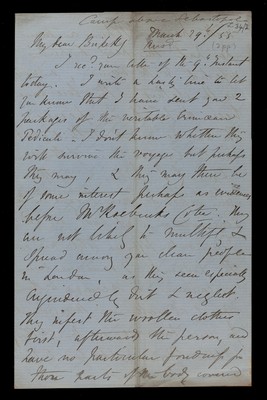 Camp above Sebastopol
March 29th/55
My dear Birkett
I recd. your letter of the 9th Instant
today. I write a hasty line to let
you know that I have sent you 2
packages of the veritable Crimean
Pediculi - I don't know whether they
will survive the voyage but perhaps
they may, & they may there be
of some interest perhaps as evidence
before Mr Roebuck's Cotee. They
are not likely to multiply &
spread among you clean people
in London, as they seem especially
engendered by dirt & neglect
They infest the woollen clothes
first, afterwards the person, and
have no particular fondness for
those parts of the body covered